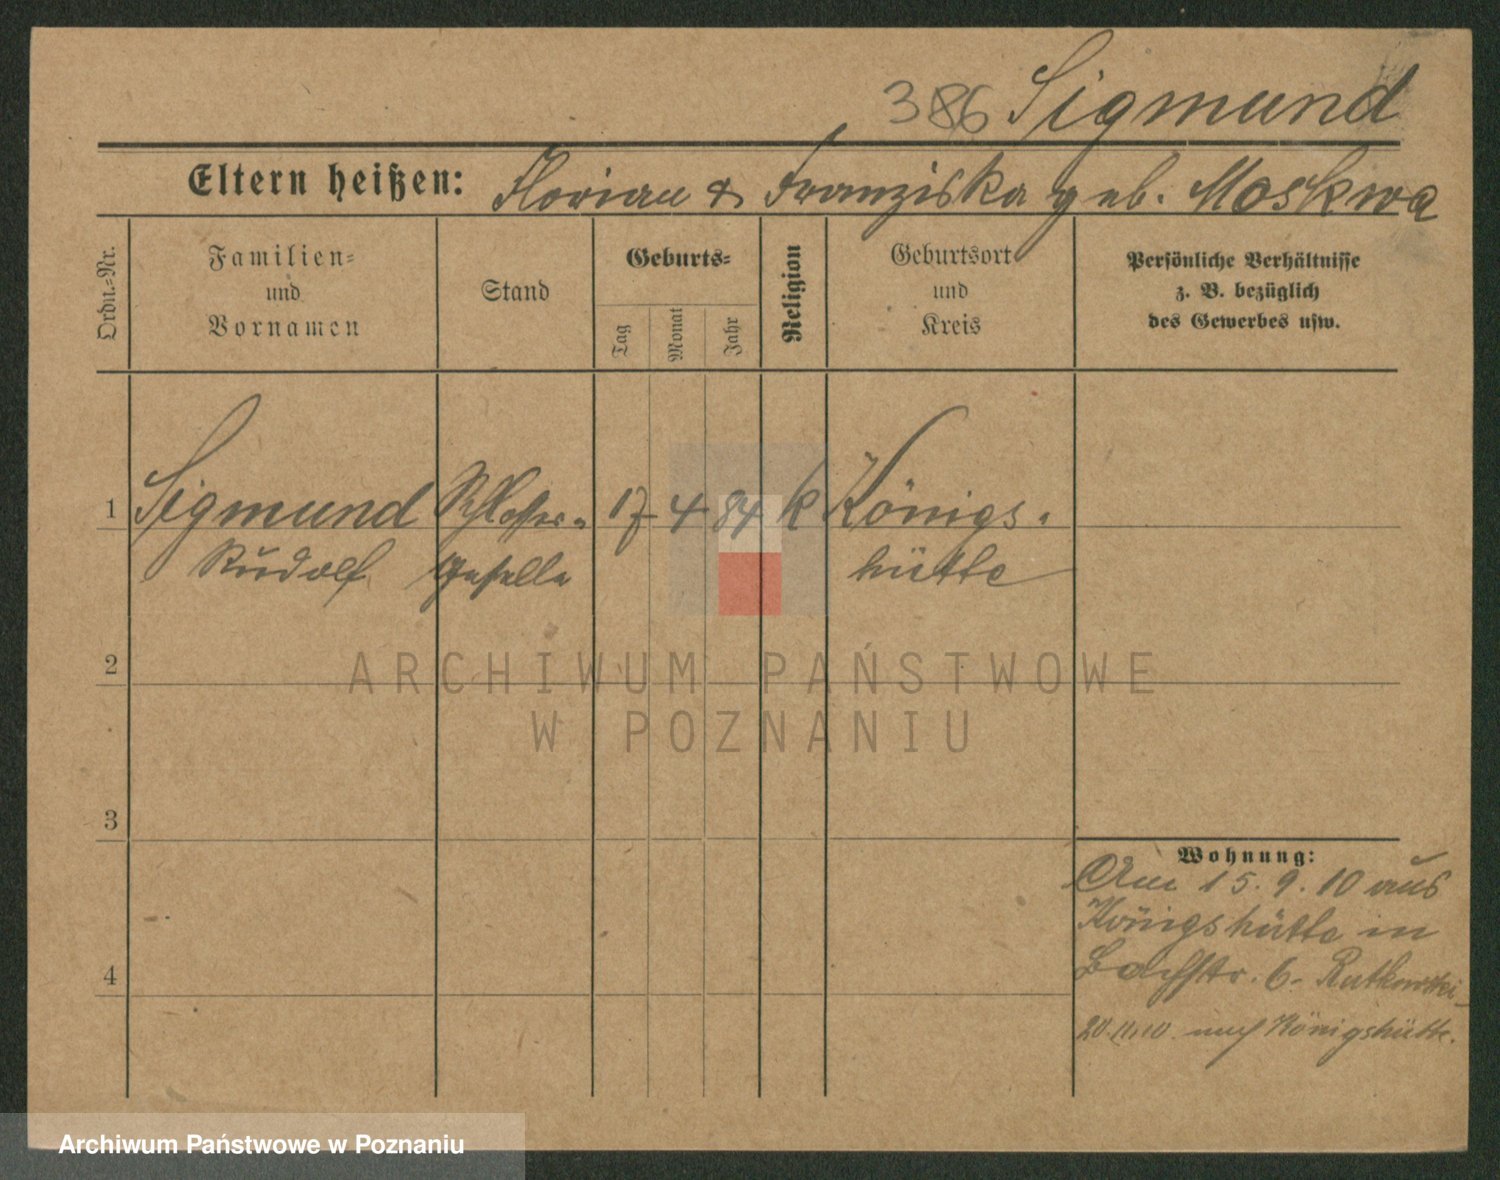 386 Sigmund
Eltern heißen: Florian & Franziska geb. Moskwa
Ordn.-Nr.
Familien-
und
Vornamen
Stand
Geburts-
Tag
Monat
Jahr
Religion
Geburtsort
und
Kreis
Persönliche Verhältnisse
z. B. bezüglich
des Gewerbes usw.
1 Sigmund Schlosser- 17 4 84 k Königs-
Rudolf geselle hütte
2
ARCHIWUM PAŃSTWOWE
W POZNANIU
3
Wohnung:
Am 15.9.10 aus
Königshütte in
Bachstr. 6. Rutkowski
4
20.11.10 nach Königshütte.
Archiwum Państwowe w Poznaniu